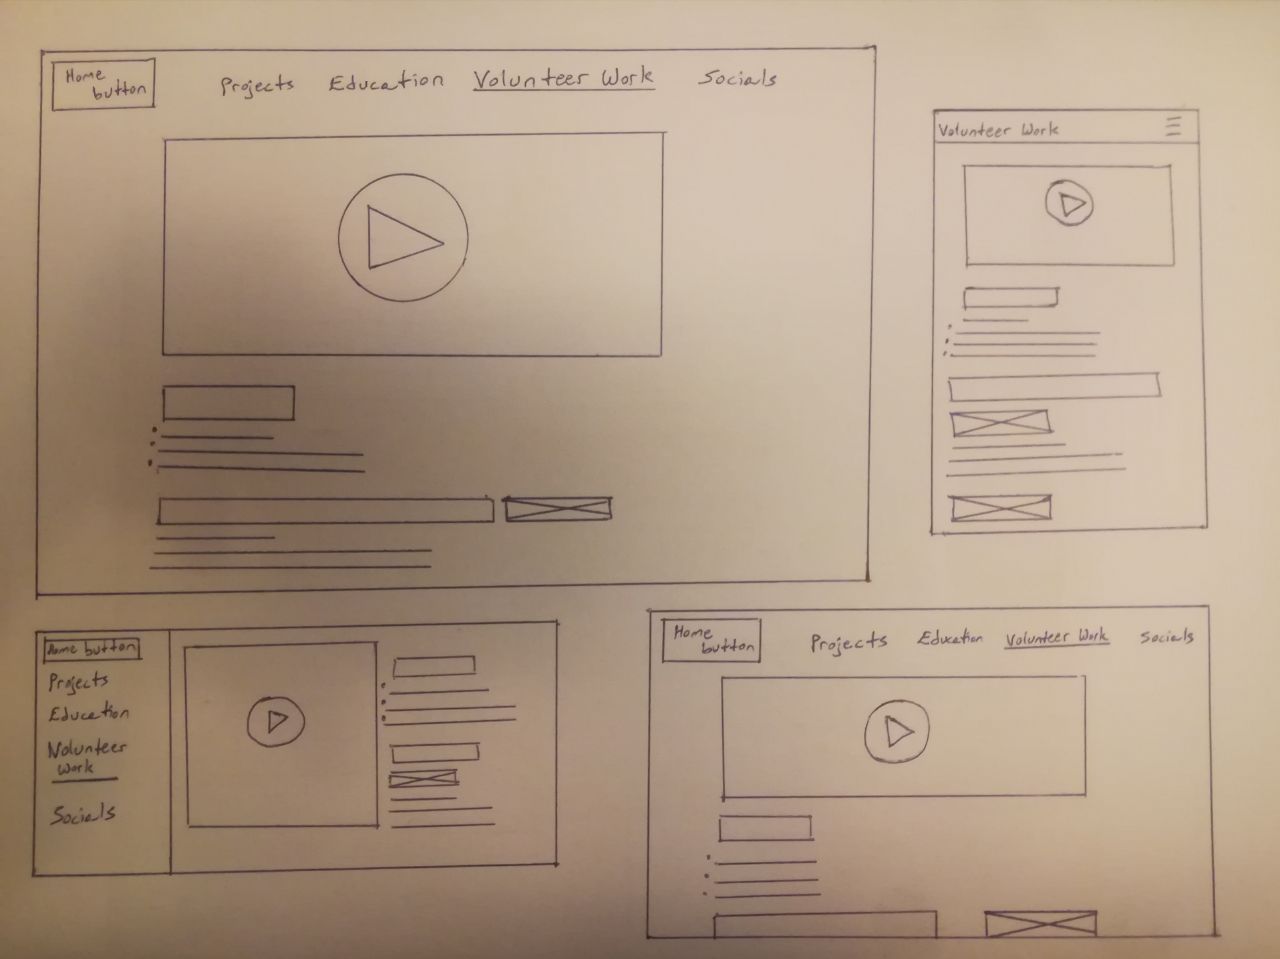 Home
button
Projects Education Volunteer Work Socials
Volunteer Work
Home button
Projects
Education
Volunteer
Work
Socials
Home
button
Projects Education Volunteer Work Socials